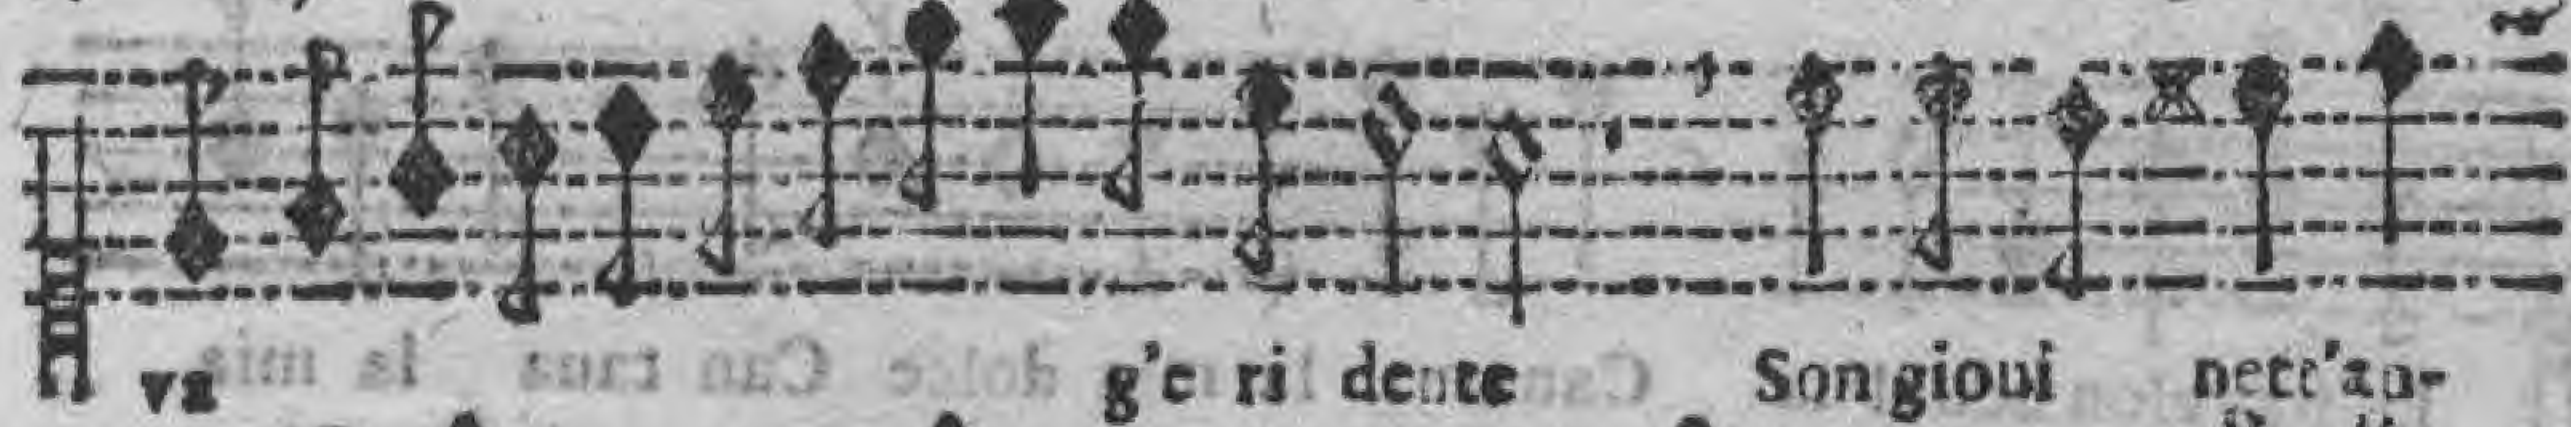 va g'e ri dente Son gioui nett'an-